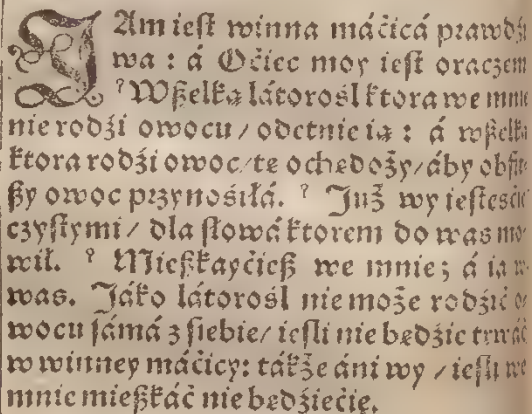 JAm ieſt winna máćicá prawdźi
wa : á Oćiec moy ieſt oraczem
² Wßelka látorośl ktora we mnie
nie rodźi owocu / odetnie ią : á wßelką
ktora rodźi owoc / tę ochędoży / áby obfit
ßy owoc przynośiłá. ² Już wy ieſteśćie
czyſtymi / dla ſłowá ktorem do was mo
wił. ² Mießkayćieß we mnie ; á ia w
was. Jáko látorośl nie może rodźić o
wocu ſámá z ſiebie / ieſli nie będźie trwáć
w winney máćicy : tákże áni wy / ieſli we
mnie mießkáć nie będźiećie.